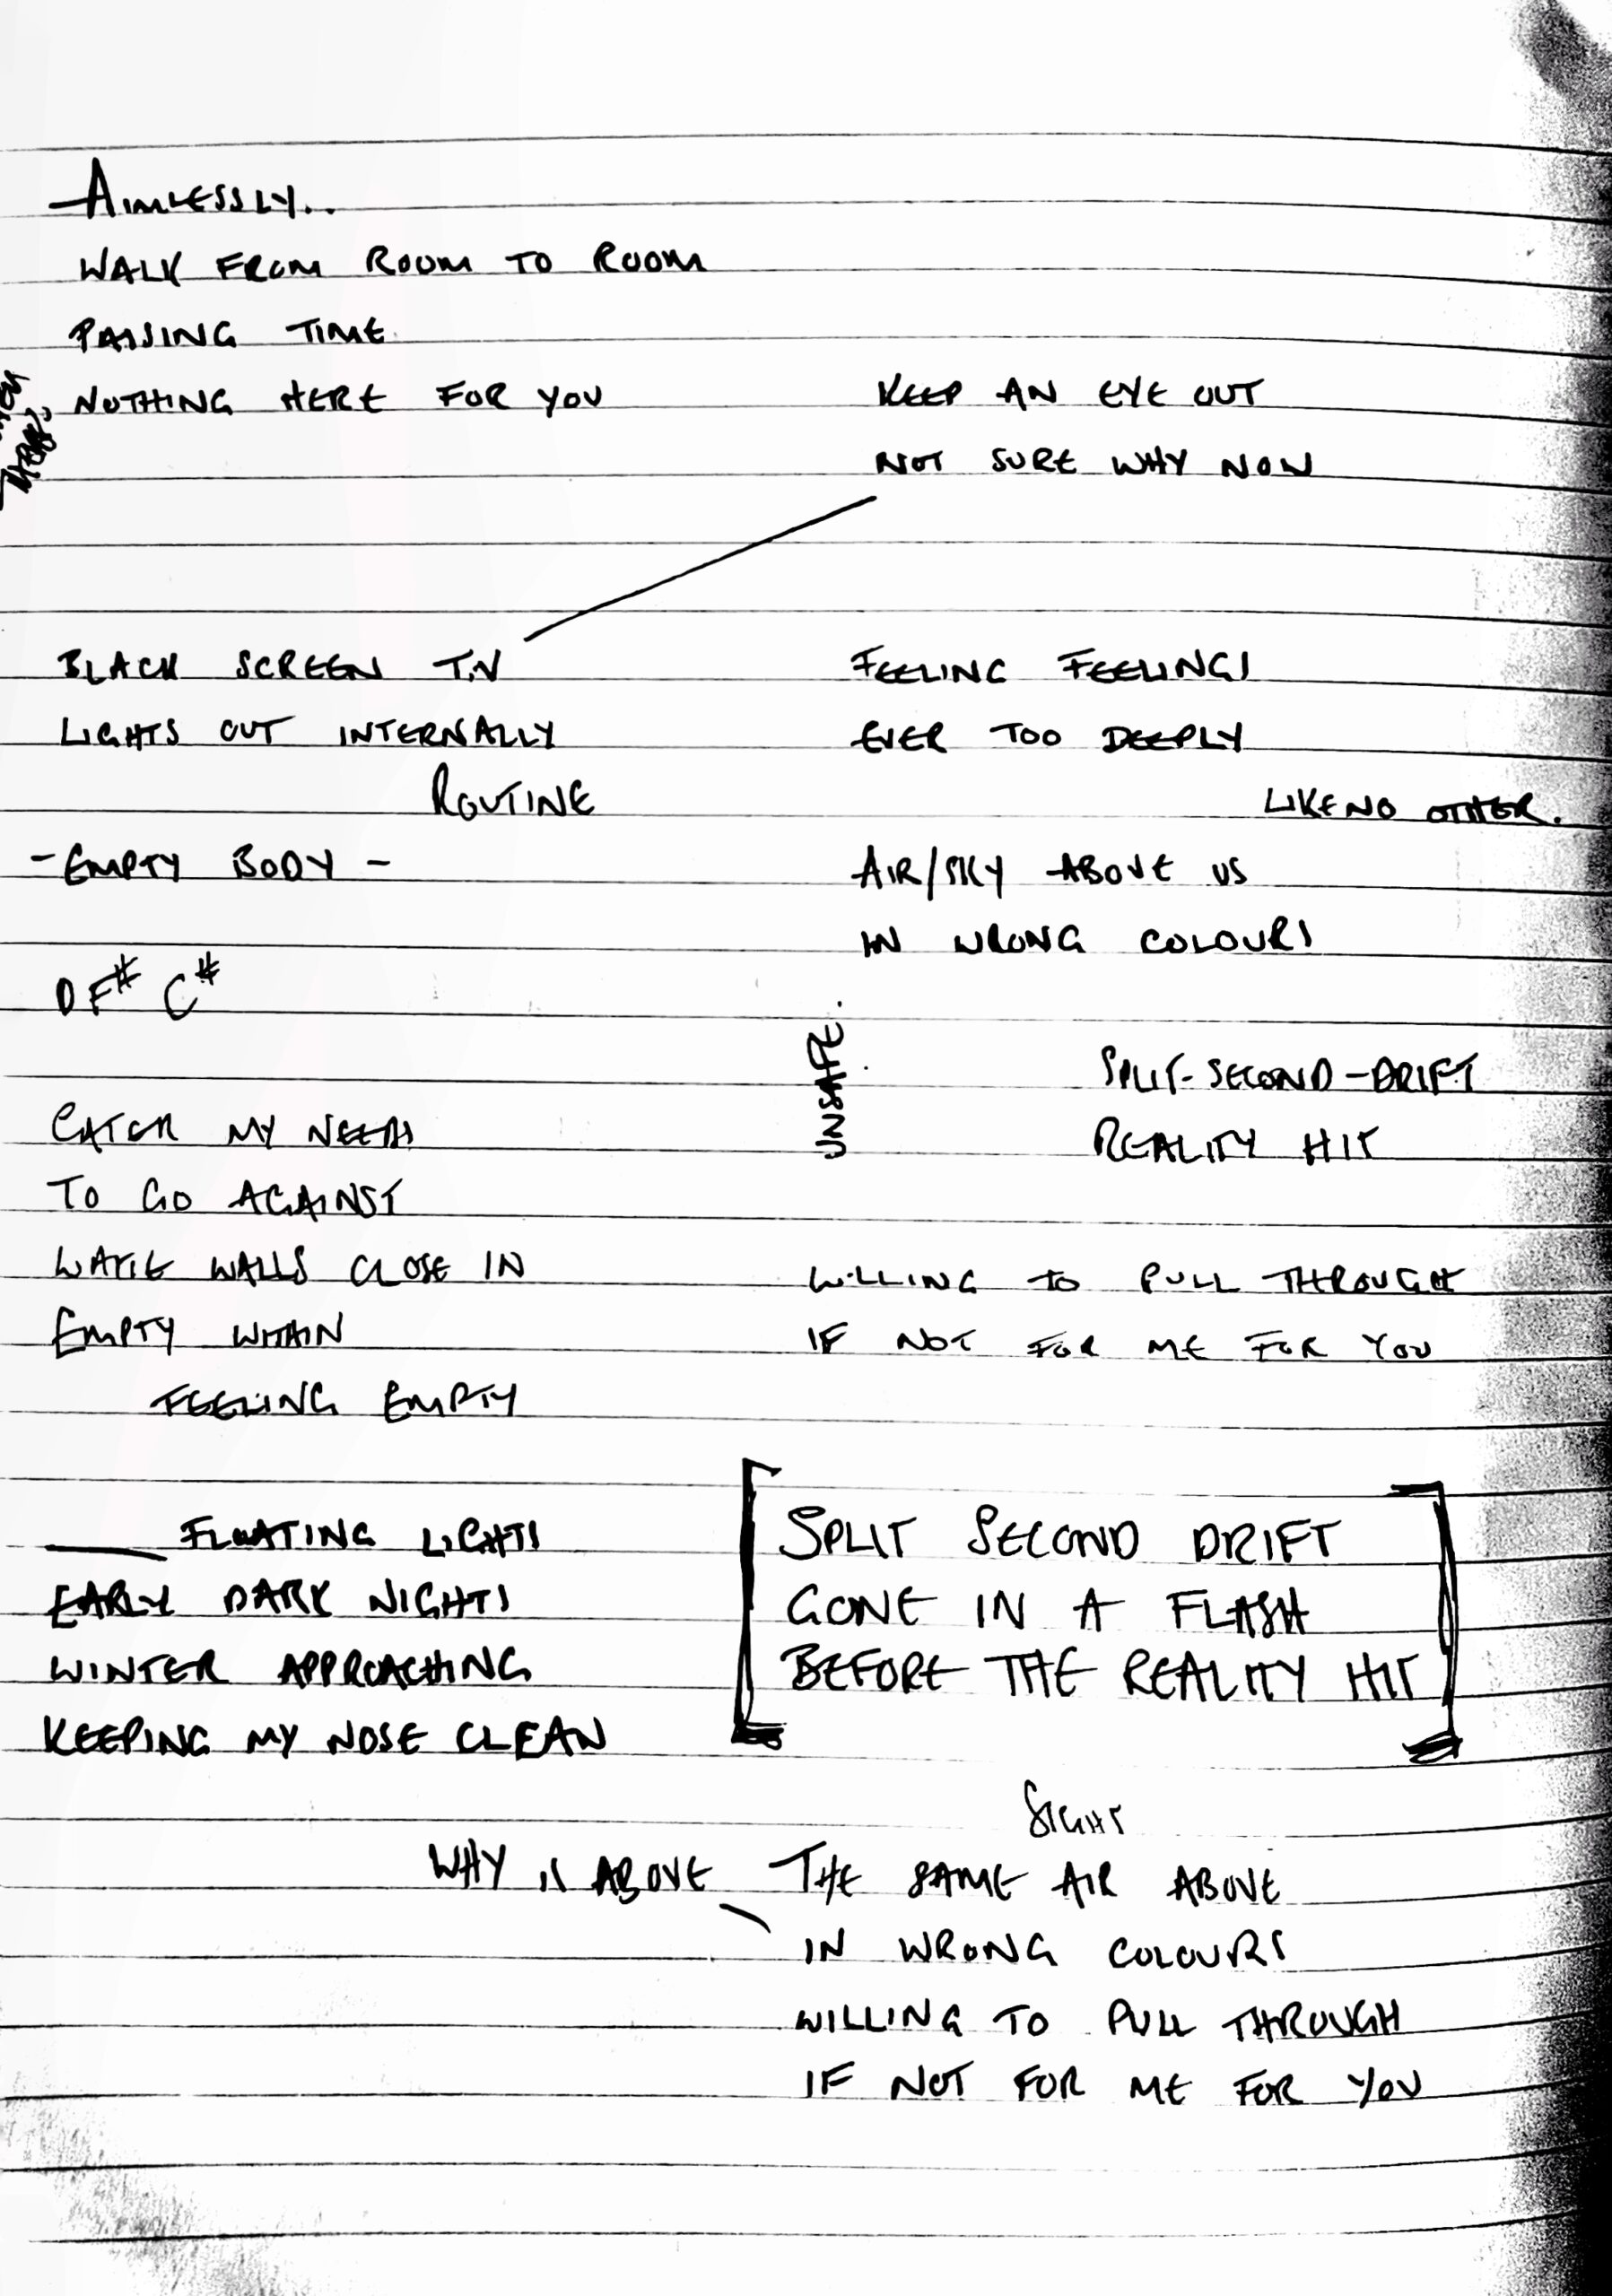 AIMLESSLY..
WALK FROM ROOM TO ROOM
PASSING TIME
NOTHING HERE FOR YOU
BLACK SCREEN T.V
LIGHTS OUT INTERNALLY
ROUTINE
- EMPTY BODY -
D F# C#
MY NEEDS
TO GO AGAINST
WALLS CLOSE IN
EMPTY WITHIN
FEELING EMPTY
FLOATING LIGHTS
EARLY DARK NIGHTS
WINTER APPROACHING
KEEPING MY NOSE CLEAN
KEEP AN EYE OUT
NOT SURE WHY NOW
FEELING FEELINGS
EVER TOO DEEPLY
LIKE NO OTHER.
AIR/SKY ABOVE US
IN WRONG COLOURS
UNSAFE.
SPLIT-SECOND-DRIFT
REALITY HIT
WILLING TO PULL THROUGH
IF NOT FOR ME FOR YOU
SPLIT SECOND DRIFT
GONE IN A FLASH
BEFORE THE REALITY HIT
SIGHT
WHY IS ABOVE
THE SAME AIR ABOVE
IN WRONG COLOURS
WILLING TO PULL THROUGH
IF NOT FOR ME FOR YOU